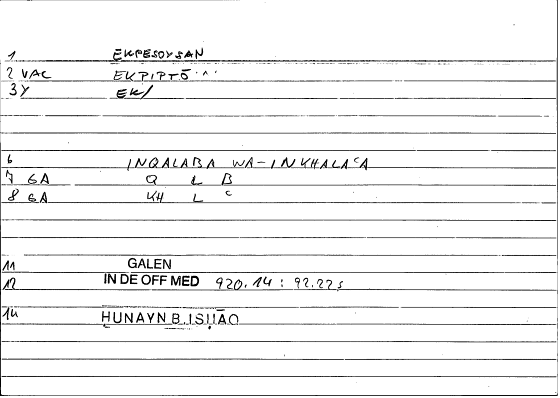 1 EKPESOYSAN
2 VAC EKPIPTŌ
3 Y EK/
6 INQALABA WA-INKHALAʿA
7 GA Q L B
8 GA KH L ʿ
11 GALEN
12 IN DE OFF MED 920.14 : 92.22
14 ḤUNAYN B. ISḤĀQ